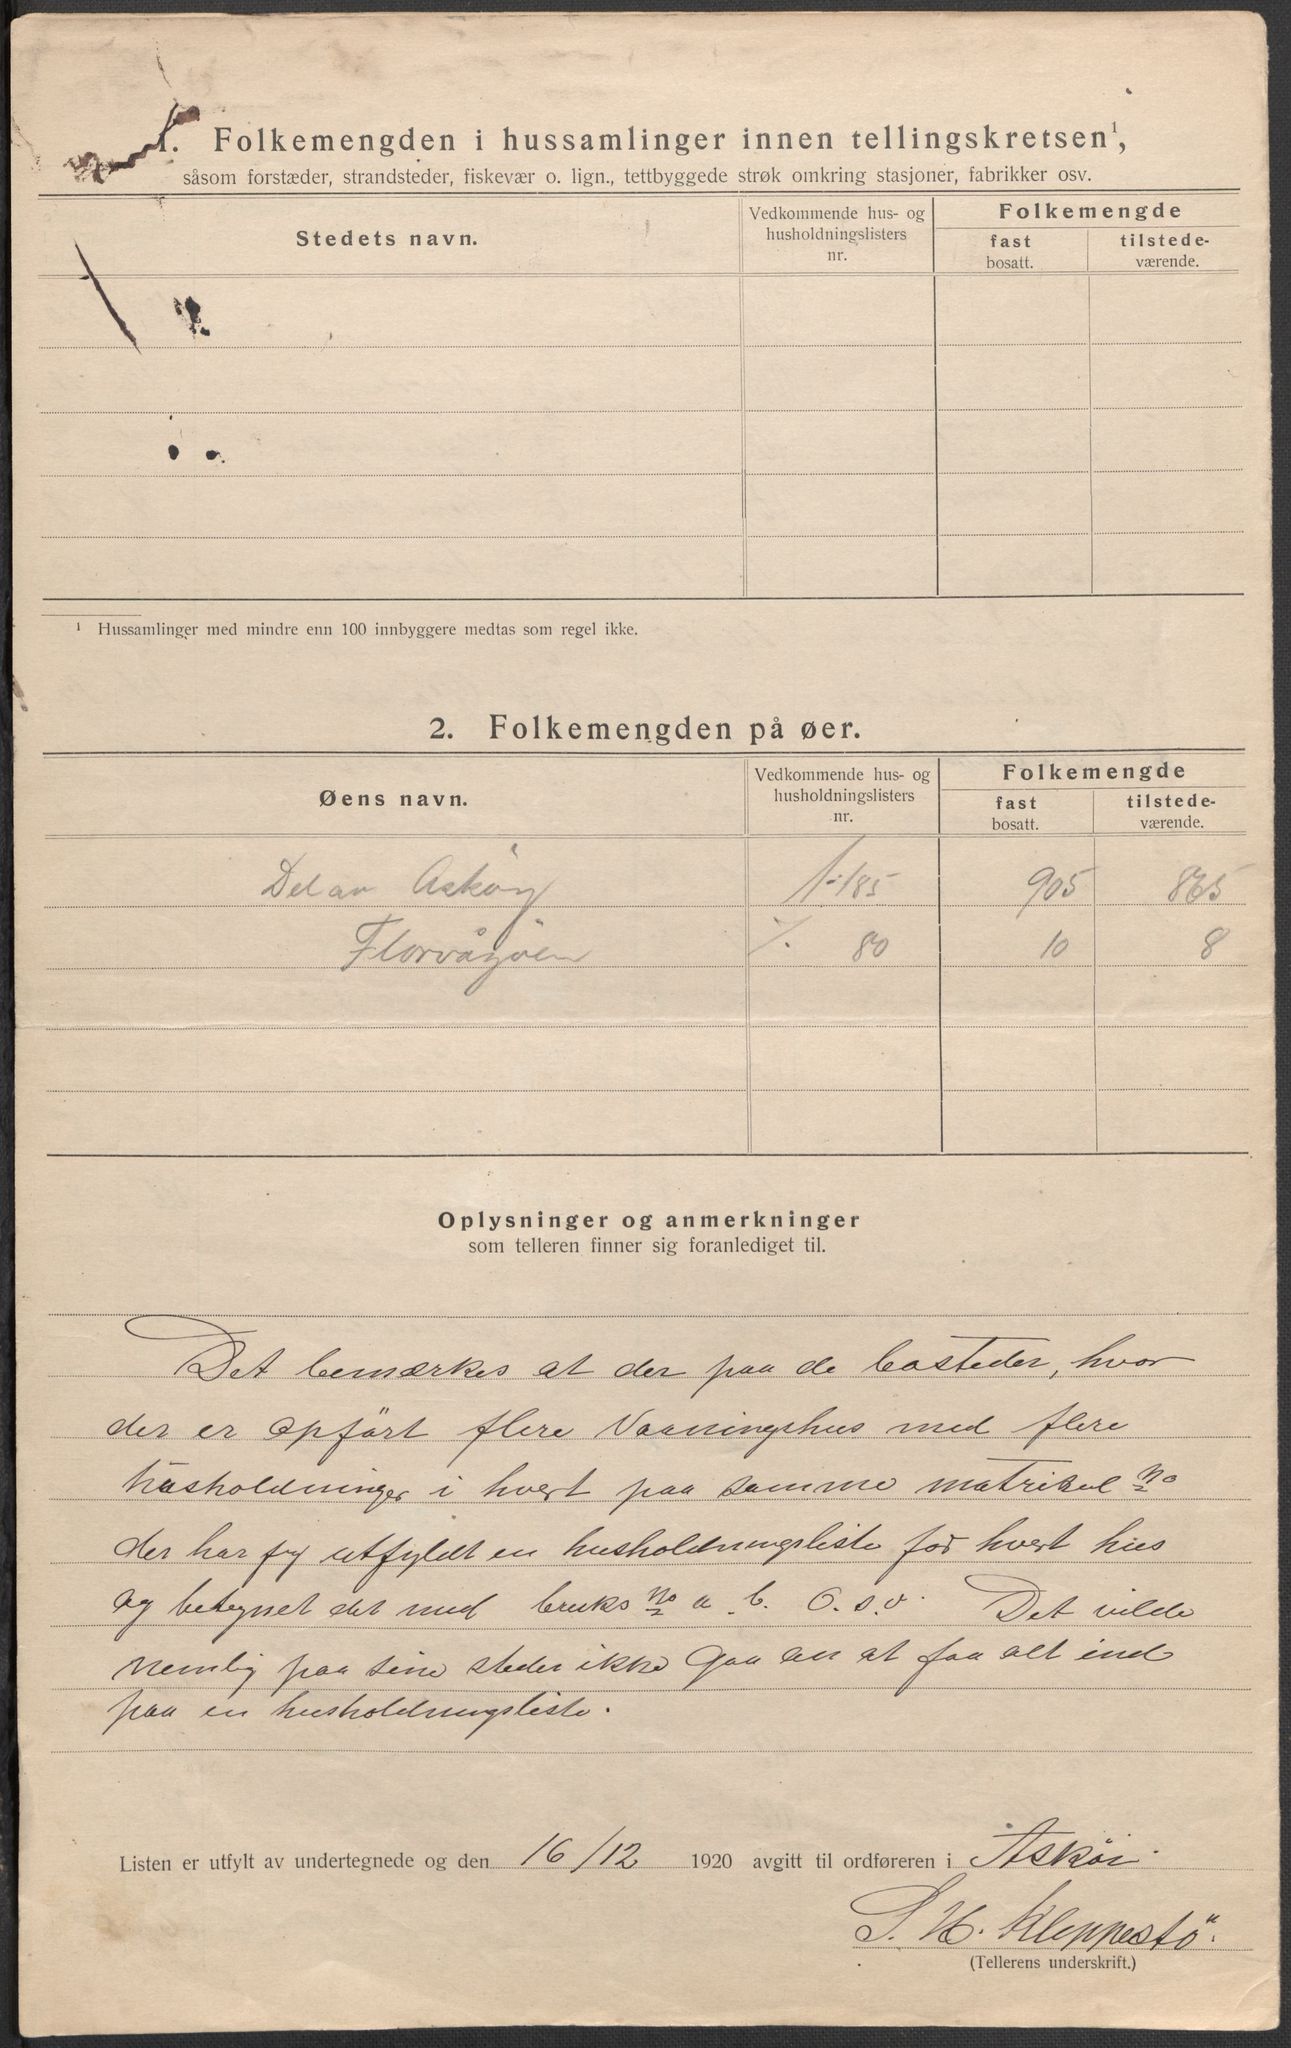 1. Folkemengden i hussamlinger innen tellingskretsen¹,
såsom forstæder, strandsteder, fiskevær o. lign., tettbyggede strøk omkring stasjoner, fabrikker osv.
Stedets navn.
Vedkommende hus- og husholdningslisters nr.
Folkemengde
fast bosatt.
tilstede-værende.
¹ Hussamlinger med mindre enn 100 innbyggere medtas som regel ikke.
2. Folkemengden på øer.
Øens navn.
Vedkommende hus- og husholdningslisters nr.
Folkemengde
fast bosatt.
tilstede-værende.
Del av Askøy 1-185 905 865
Florvågöen 80 10 8
Oplysninger og anmerkninger
som telleren finner sig foranlediget til.
Det bemærkes at der paa de bosteder, hvor
der er opført flere Vaaningshus med flere
husholdninger i hvert paa samme matrikul No
der har jeg utfyldt en husholdningsliste for hvert hus
og betegnet det med bruks No a. b. o.s.v. Det vilde
nemlig paa sine steder ikke gaa an at faa alt ind
paa en husholdningsliste.
Listen er utfylt av undertegnede og den 16/12 1920 avgitt til ordføreren i Askøi.
S. H. Kleppestö.
(Tellerens underskrift.)